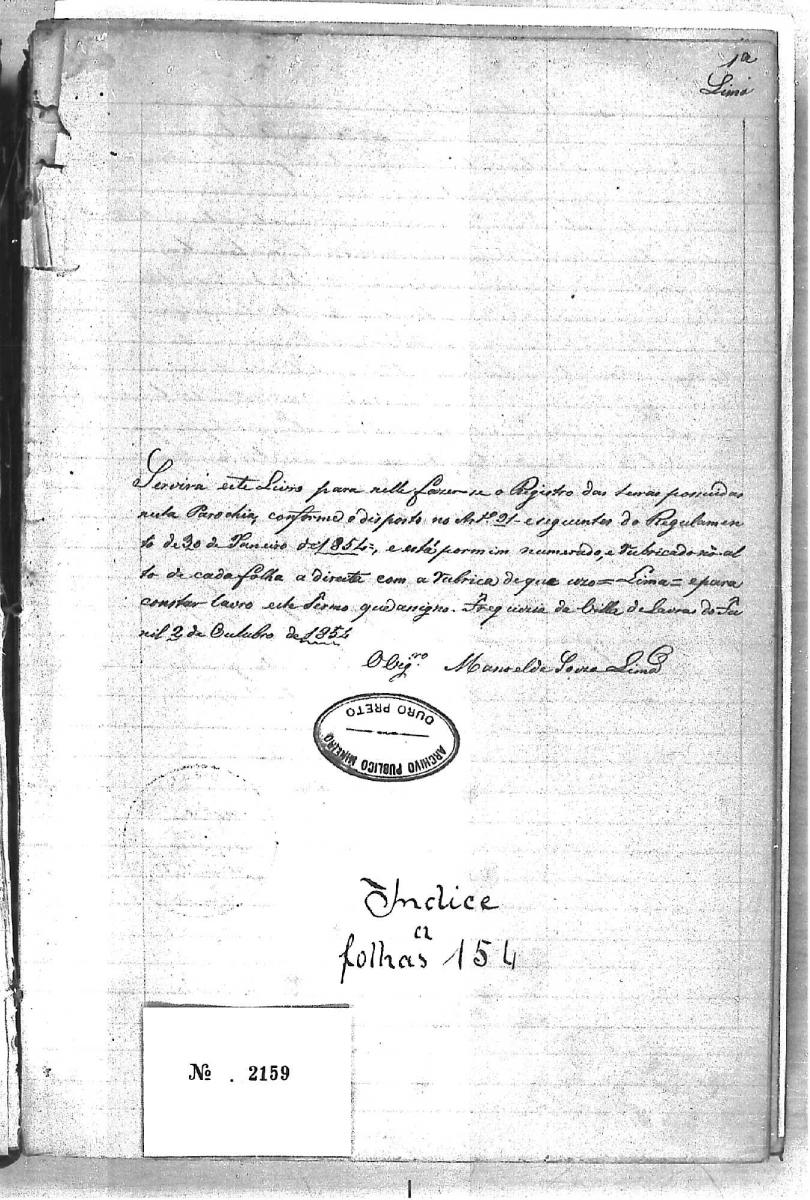 1a
Lima
Servirá este Livro para nelle fazer-se o Registro das terras possuidas
nesta Parochia, conforme o disposto no Art.º 91 e seguintes do Regulamen
to de 30 de Janeiro de 1854, e está por mim numerado, e rubricado no al
to de cada folha a direita com a rubrica de que uzo = Lima = e para
constar lavro este termo que assigno. Freguezia da Villa de Lavras do Fu
nil 2 de Outubro de 1854
O Vig.ro Manoel de Souza Lima
ARCHIVO PUBLICO MINEIRO
OURO PRETO
Indice
a
folhas 154
№ . 2159